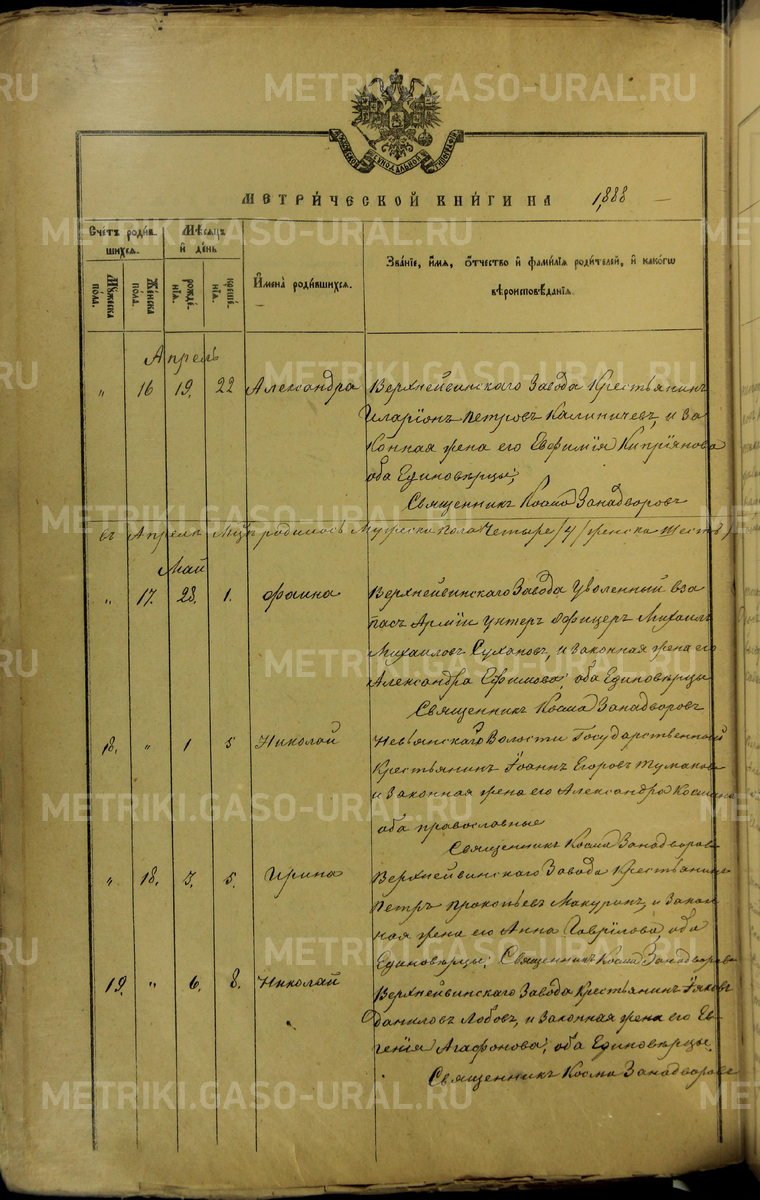 МЕТРИ́ЧЕСКОЙ КНИ́ГИ НА 1888
Сче́тъ роди́вшихся.
Мѣ́сяцъ и де́нь
Имена̀ роди́вшихся.
Зва́нїе, и́мя, о́тчество и фами́лїя роди́телей, и како́гѡ вѣроисповѣ́данїя.
Му́жеска по́ла.
Же́нска по́ла.
рожде́нїя.
креще́нїя.
Апрель
" 16 19. 22 Александра Верхнейвинскаго Завода Крестьянинъ
Иларіонъ Петровъ Калиничевъ, и за
конная жена его Евфимія Кипріянова
оба Единовѣрцы;
Священникъ Косма Занадворовъ
въ Апрелѣ Мцѣ родилось Мужеска пола Четыре /4/ женска шесть
Май
" 17. 28. 1. Фаина Верхнейвинскаго Завода Уволенный вза
пасъ Арміи унтеръ Офицеръ Михаилъ
Михаиловъ Сухановъ, и законная жена его
Александра Ефимова; оба Единовѣрцы
Священникъ Косма Занадворовъ
18. " 1 5 Николай Невьянскаго Волости Государственный
Крестьянинъ Іоаннъ Егоровъ Тумаковъ
и Законная жена его Александра Космина
оба православные
Священникъ Косма Занадворовъ
" 18. 3. 5. Ирина Верхнейвинскаго Завода Крестьянинъ
Петръ Прокопьевъ Макуринъ, и Закон
ная жена его Анна Гаврілова, оба
Единовѣрцы; Священникъ Косма Занадворовъ
19. " 6. 8. Николай Верхнейвинскаго Завода Крестьянинъ Іяковъ
Даниловъ Лобовъ, и Законная жена его Ев
генія Агафонова; оба Единовѣрцы.
Священникъ Косма Занадворовъ
METRIKI.GASO-URAL.RU